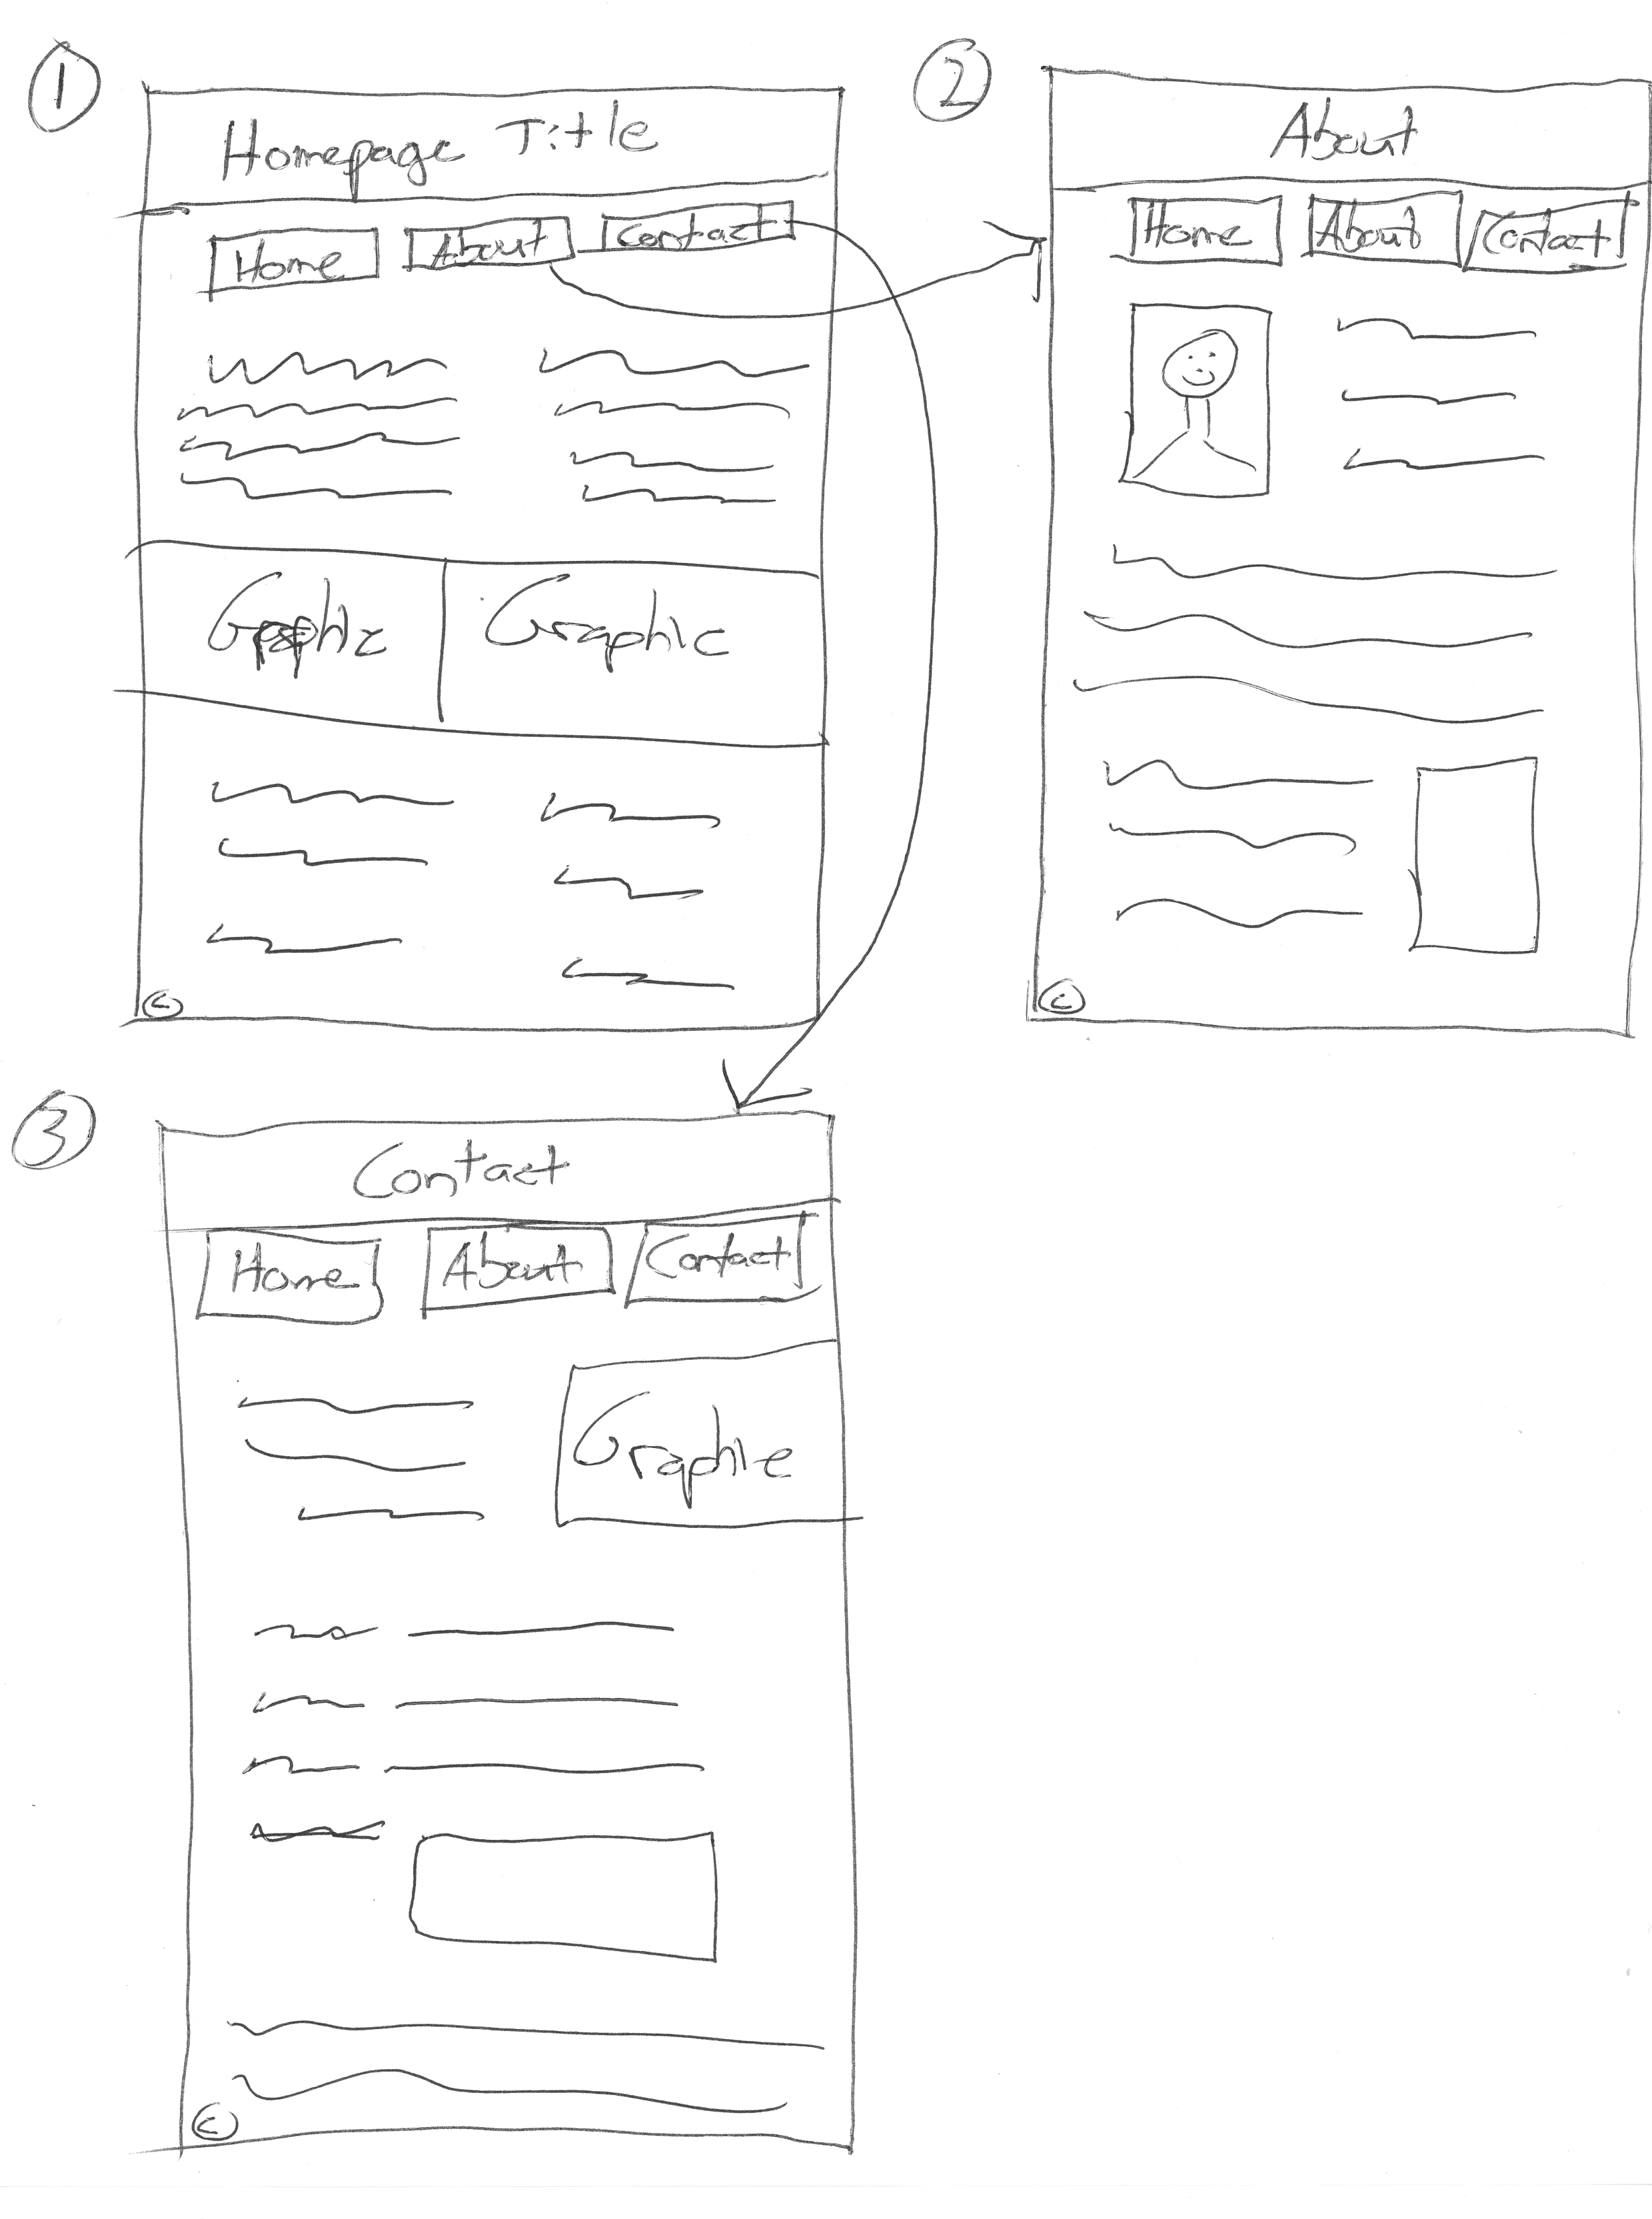 1
Homepage Title
Home About Contact
Graphic Graphic
©
2
About
Home About Contact
©
3
Contact
Home About Contact
Graphic
©